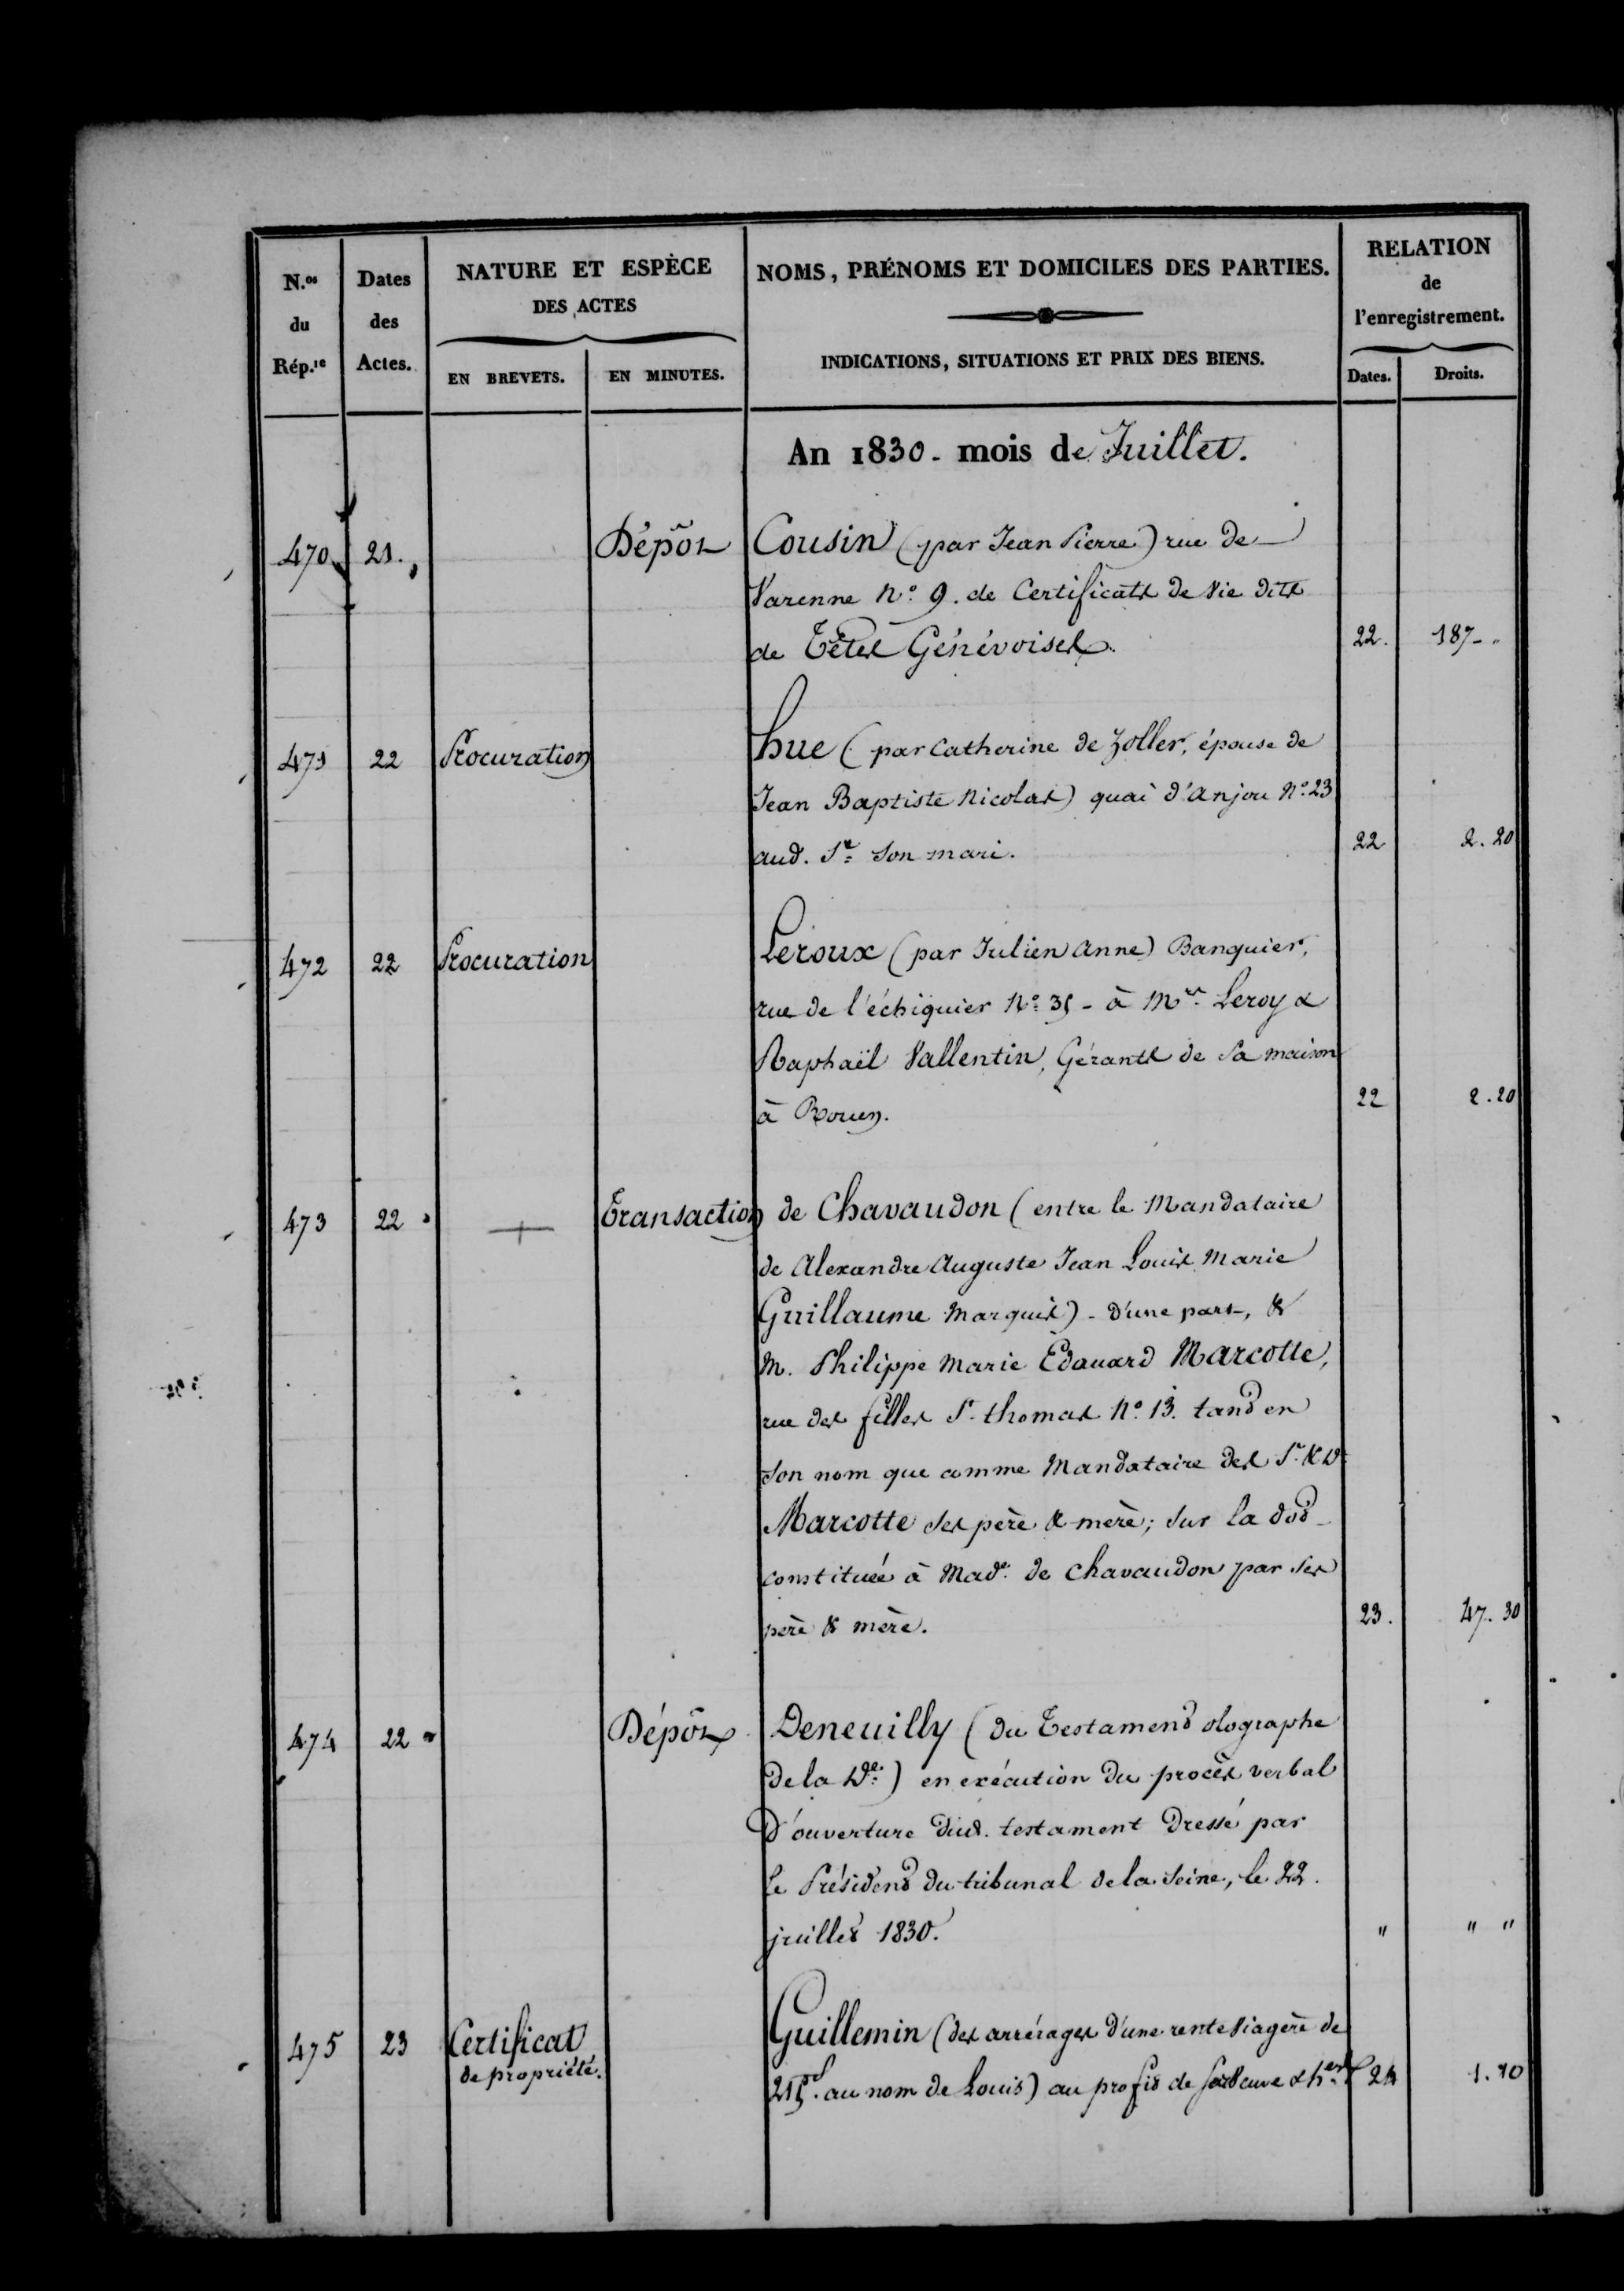 N.os du Rép.re
Dates des Actes.
NATURE ET ESPÈCE DES ACTES
EN BREVETS.
EN MINUTES.
NOMS, PRÉNOMS ET DOMICILES DES PARTIES.
INDICATIONS, SITUATIONS ET PRIX DES BIENS.
RELATION de l'enregistrement.
Dates.
Droits.
An 1830. mois de Juillet.
470 21. Dépôt Cousin (par Jean Pierre) rue de
Varenne N.º 9. de Certificats de vie dits
de Têtes Génévoises. 22. 187 - "
471 22 Procuration hue (par Catherine de Zoller, épouse de
Jean Baptiste Nicolas) quai d'anjou N.º 23
aud. Sr. son mari. 22 2. 20
472 22 Procuration Leroux (par Julien Anne) Banquier,
rue de l'échiquier N.º 35 - à Mrs. Leroy &
Raphaël Vallentin, Gérants de sa maison
à Rouen. 22 2. 20
473 22 Transaction de Chavaudon (entre le Mandataire
de Alexandre Auguste Jean Louis Marie
Guillaume Marquis) - d'une part, &
M. Philippe Marie Edouard Marcotte,
rue des filles St. thomas N.º 13. tant en
son nom que comme Mandataire des Sr. & De.
Marcotte ses père & mère; sur la dot
constituée à Made. de Chavaudon par ses
père & mère. 23. 47. 30
474 22 Dépôt Deneuilly (du Testament olographe
de la De.) en exécution du procès verbal
D'ouverture dud. testament Dressé par
le Président du tribunal de la Seine, le 22.
juillet 1830. " " "
475 23 Certificat Guillemin (des arrérages d'une rente Viagère de
de propriété. 215f. au nom de Louis) au profit de sa veuve & hers. 24 1. 10